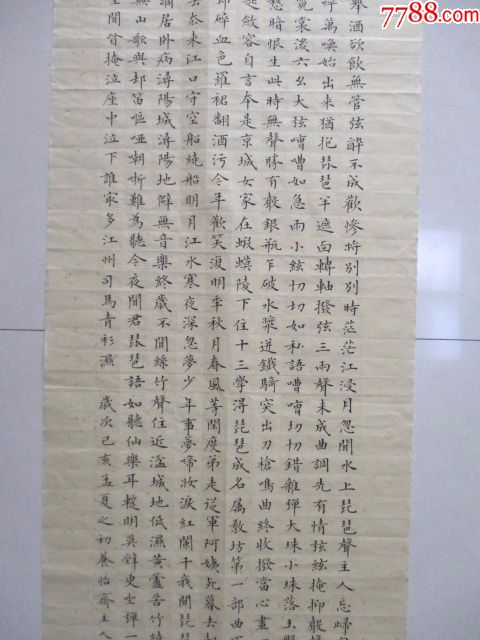 7788.com
舉酒欲飲無管弦醉不成歡慘將別別時茫茫江浸月忽聞水上琵琶聲主人忘歸
呼萬喚始出来猶抱琵琶半遮面轉軸撥弦三兩聲未成曲調先有情弦弦掩抑聲
霓裳後六么大弦嘈嘈如急雨小絃切切如私語嘈嘈切切錯雜彈大珠小珠落玉
愁暗恨生此時無聲勝有聲銀瓶乍破水漿迸鐵騎突出刀槍鳴曲終收撥當心畫
起斂容自言本是京城女家在蝦蟆陵下住十三学得琵琶成名属教坊第一部曲
節碎血色羅裙翻酒污今年歡笑復明季秋月春風等閑度弟走從軍阿姨死暮去
去来江口守空船繞船明月江水寒夜深忽夢少年事夢啼妝淚紅闌干我聞琵琶
謫居卧病潯陽城潯陽地僻無音樂終歲不聞絲竹聲住近湓城地低濕黄蘆苦竹
無山歌與邨笛嘔啞嘲哳難為聽今夜聞君琵琶語如聽仙樂耳暫明莫辭更坐彈一
聞皆掩泣座中泣下誰家多江州司馬青衫濕 歲次己亥孟夏之初養怡齋主人